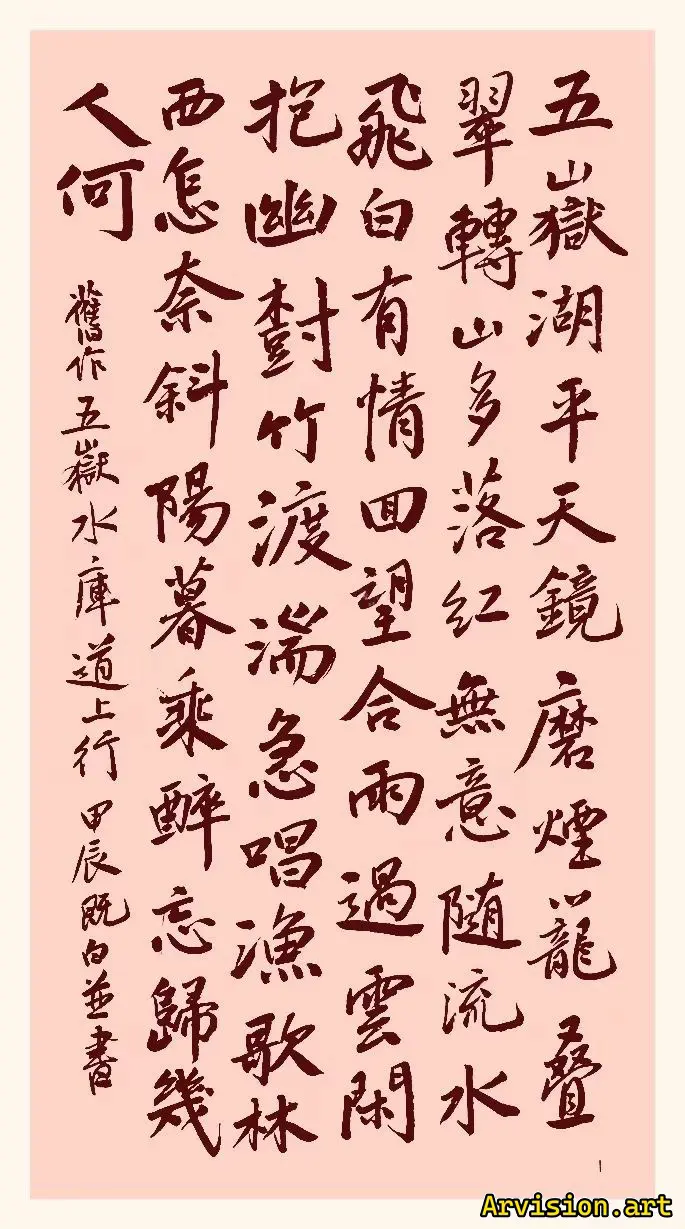 五嶽湖平天鏡磨煙籠疊
翠轉山多落紅無意隨流水
飛白有情囬望合雨過雲閑
抱幽對竹渡湍急唱漁歌林
西怎奈斜陽暮乘醉忘歸幾
人何
舊作五嶽水庫道上行 甲辰既白並書
Arvision.art